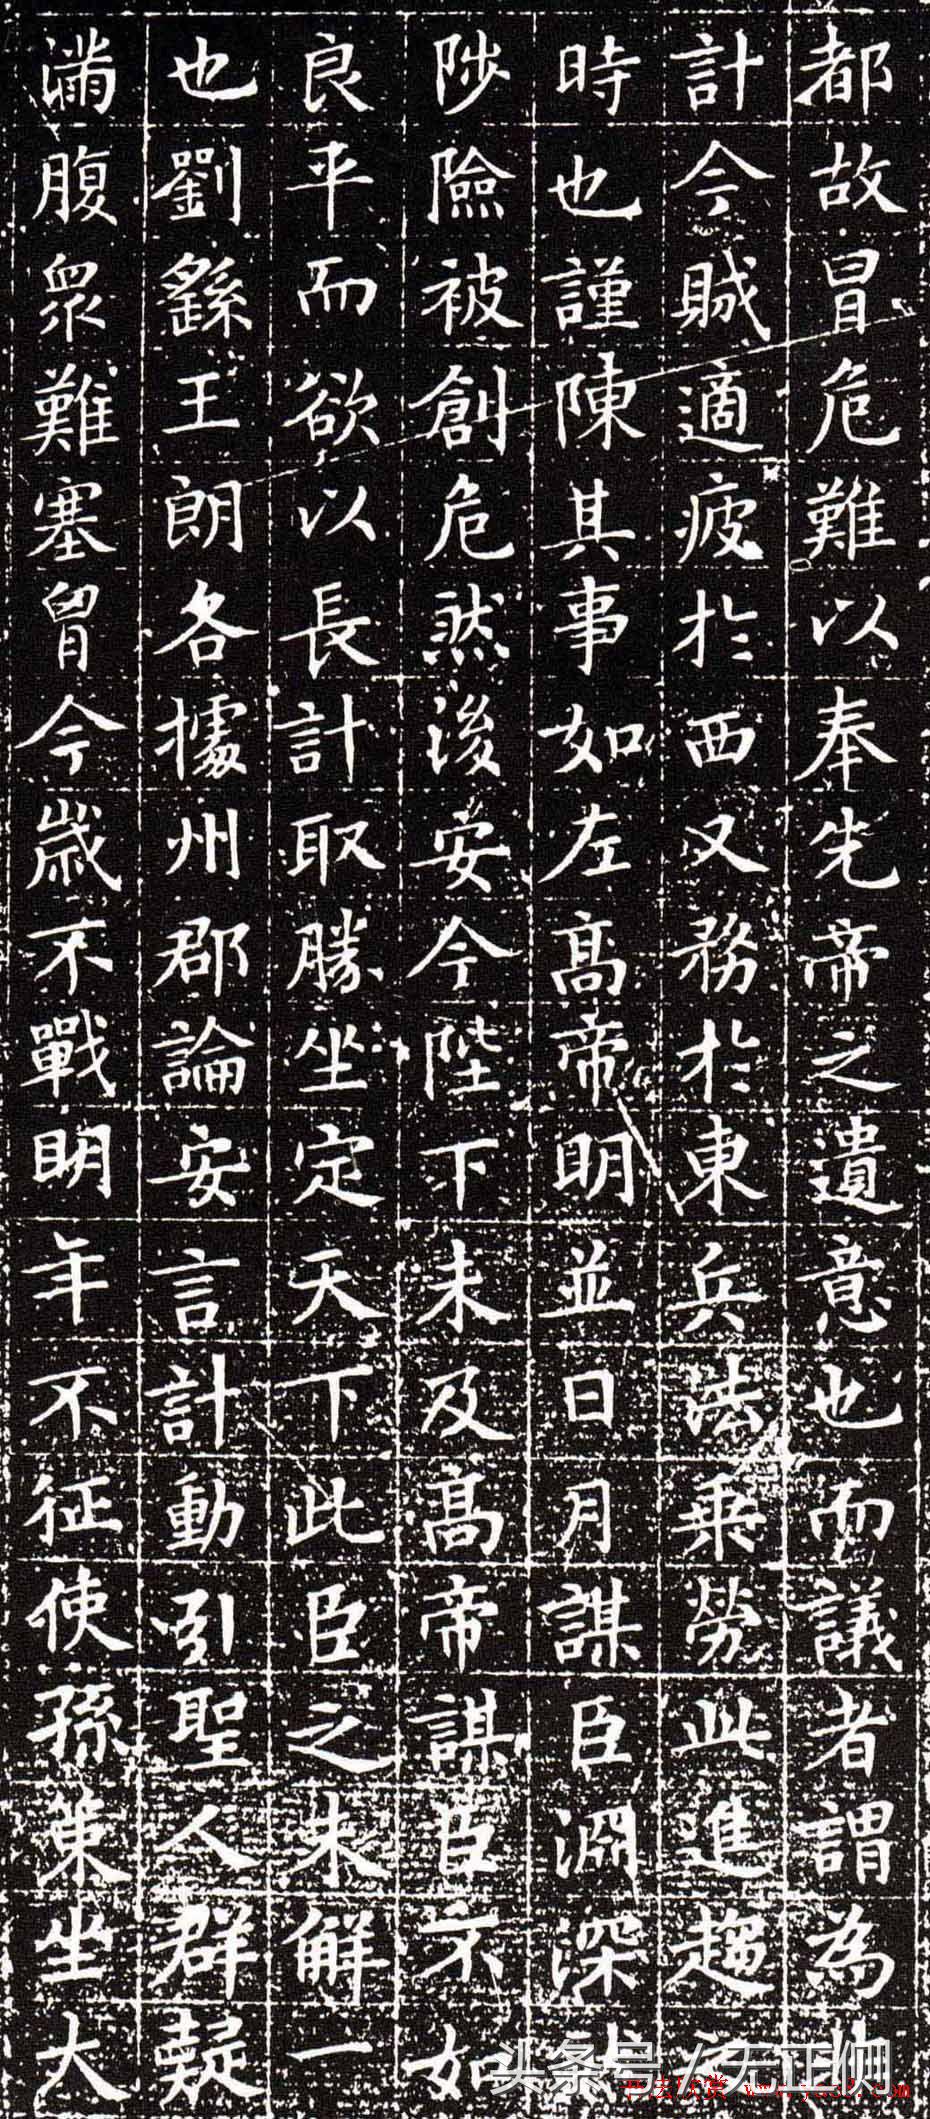 都故冒危難以奉先帝之遺意也而議者謂為
計今賊適疲於西又務於東兵法乘勞此進趨
時也謹陳其事如左高帝明並日月謀臣淵深
陟險被創危然後安今陛下未及高帝謀臣不如
良平而欲以長計取勝坐定天下此臣之未解一
也劉繇王朗各據州郡論安言計動引聖人群疑
滿腹眾難塞胷今歲不戰明年不征使孫策坐大
头条号 / 无正侧